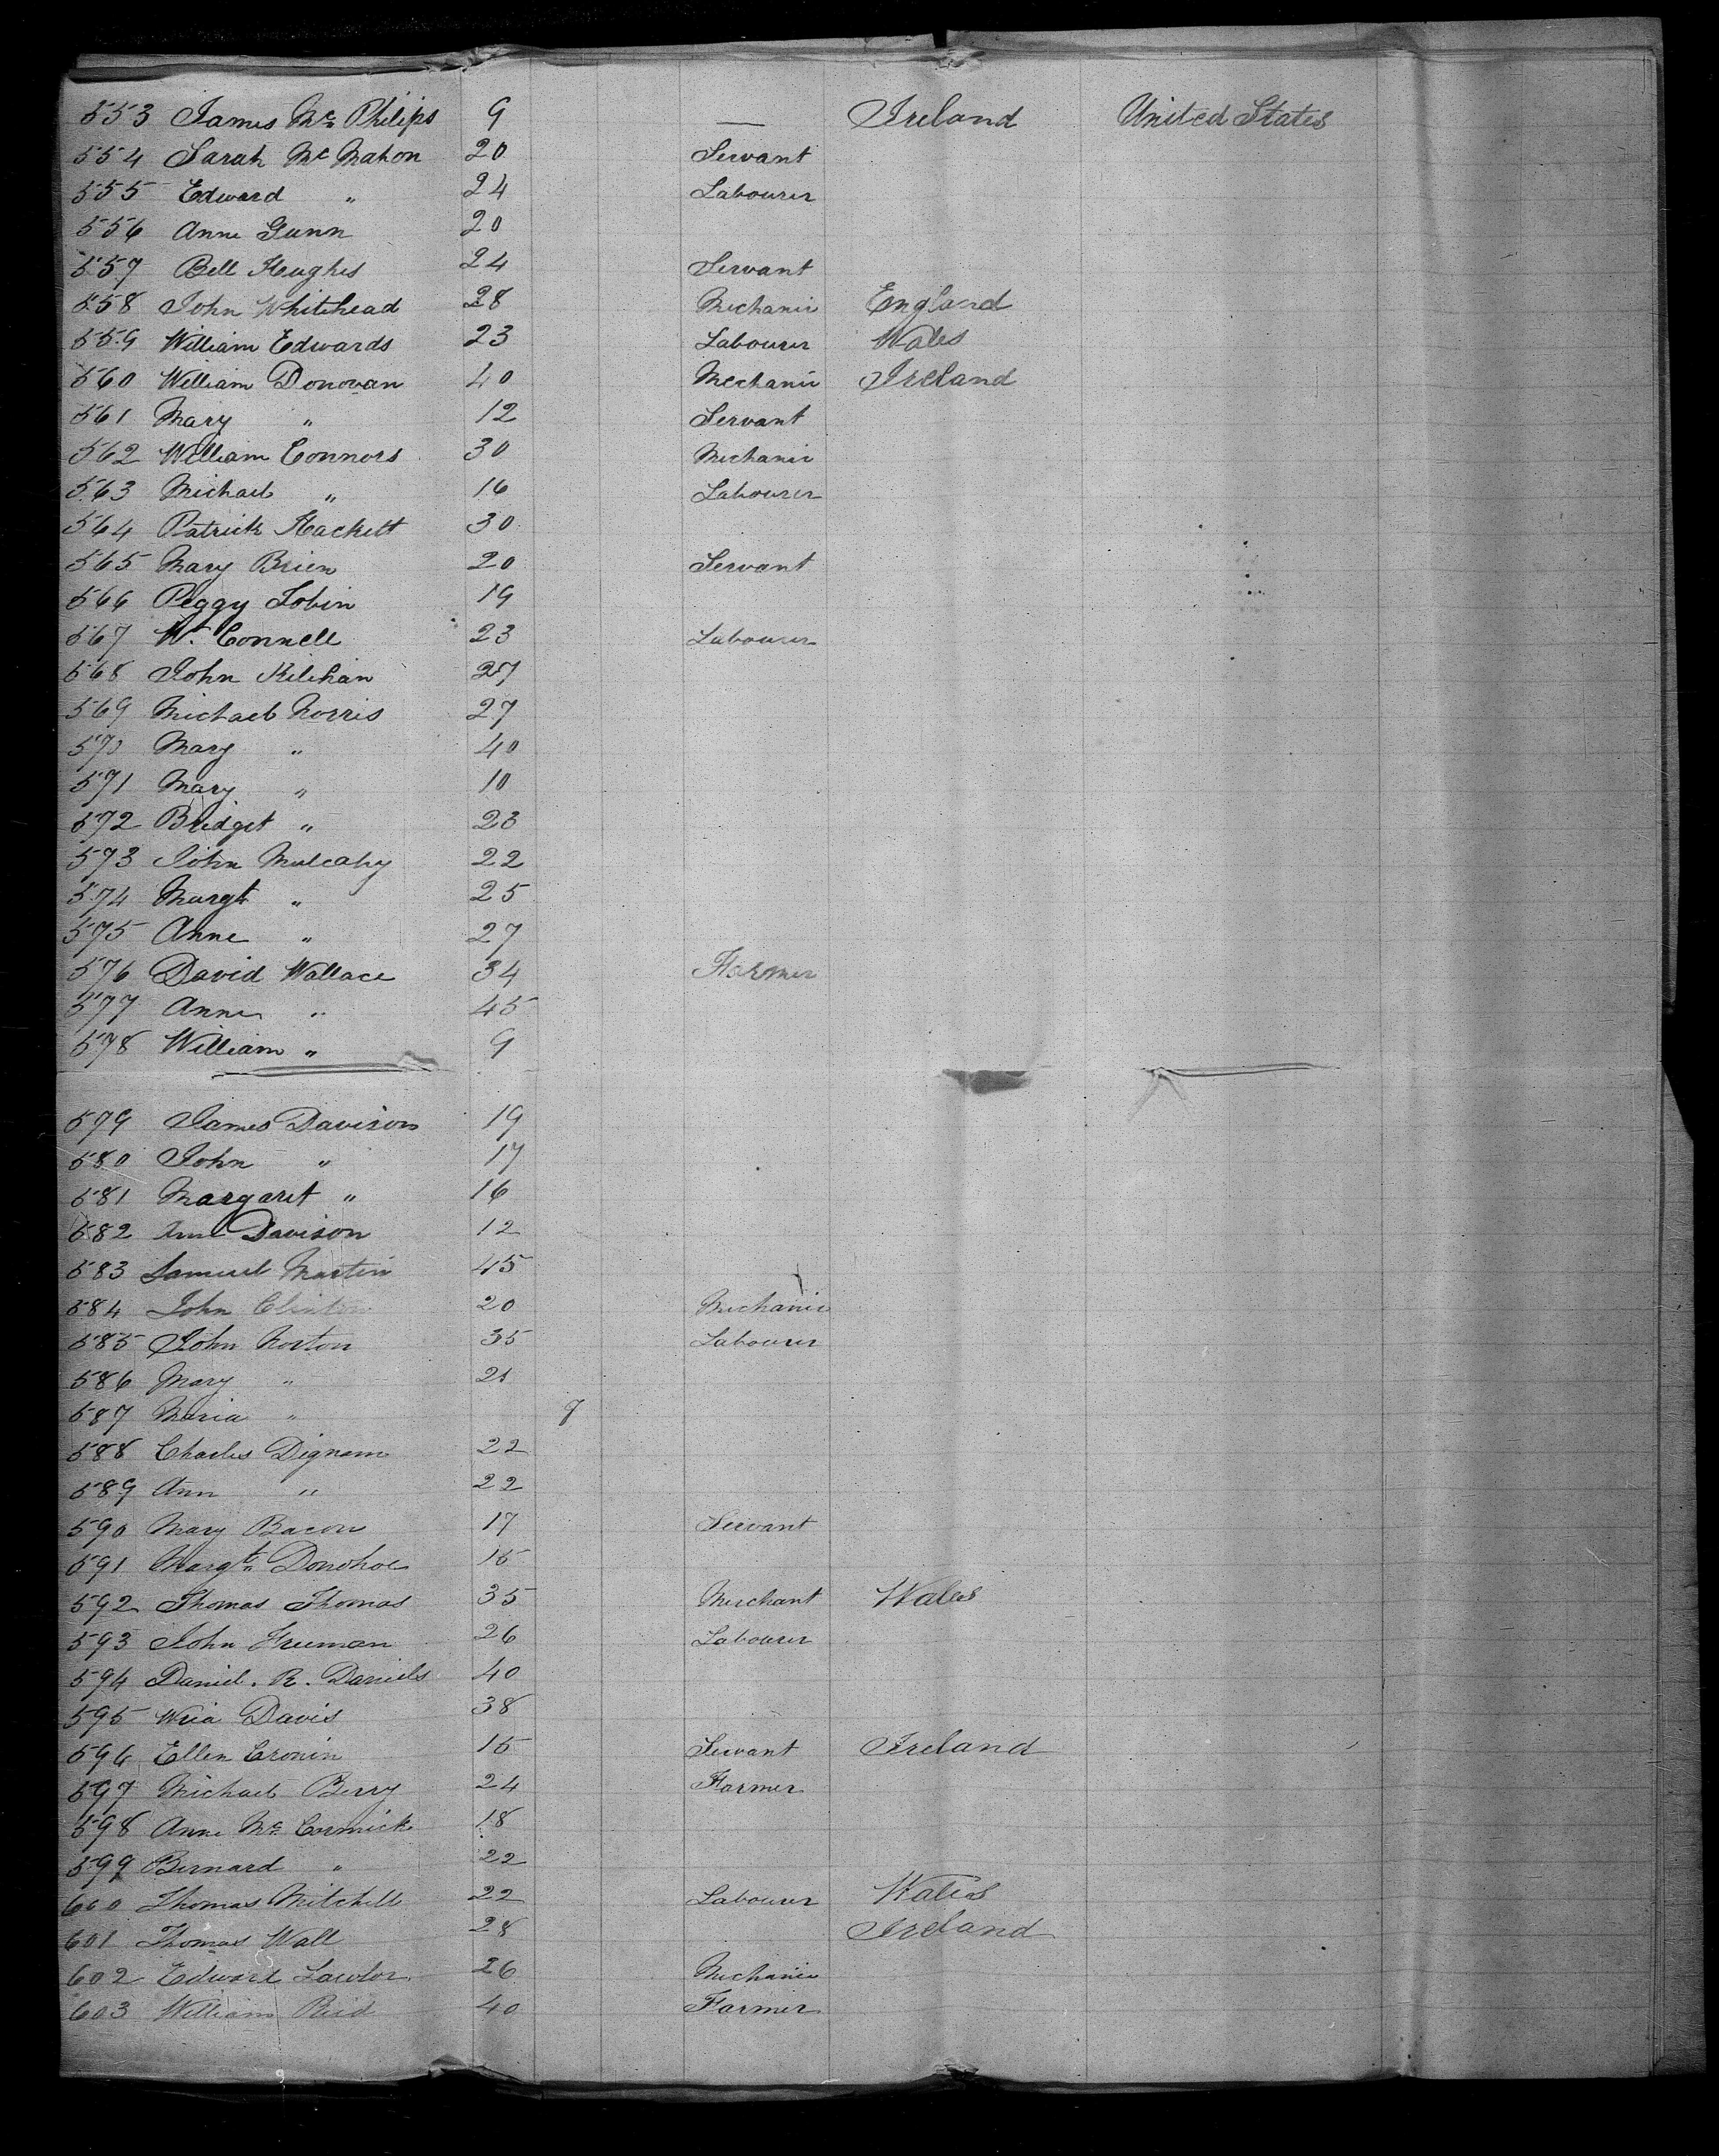 553 James Mc Philips 9 — Ireland United States
554 Sarah Mc Mahon 20 Servant
555 Edward " 24 Labourer
556 Anne Gunn 20
557 Bell Hughes 24 Servant
558 John Whitehead 28 Mechanic England
559 William Edwards 23 Labourer Wales
560 William Donovan 40 Mechanic Ireland
561 Mary " 12 Servant
562 William Connors 30 Mechanic
563 Michael " 16 Labourer
564 Patrick Hackett 30
565 Mary Brien 20 Servant
566 Peggy Tobin 19
567 Wm Connell 23 Labourer
568 John Kilehan 27
569 Michael Norris 27
570 Mary " 40
571 Mary " 10
572 Bridget " 23
573 John Mulcahy 22
574 Margt " 25
575 Anne " 27
576 David Wallace 34 Farmer
577 Anne " 45
578 William " 9
579 James Davison 19
580 John " 17
581 Margaret " 16
582 Ann Davison 12
583 Samuel Martin 45
584 John Clinton 20 Mechanic
585 John Norton 35 Labourer
586 Mary " 21
587 Maria "
588 Charles Dignam 22
589 Ann " 22
590 Mary Bacon 17 Servant
591 Margt Donohoe 15
592 Thomas Thomas 35 Merchant Wales
593 John Freeman 26 Labourer
594 Daniel. R. Daniels 40
595 Davis 38
596 Ellen Cronin 15 Servant Ireland
597 Michael Berry 24 Farmer
598 Anne Mc Cormick 18
599 Bernard " 22
600 Thomas Mitchell 22 Labourer Wales
601 Thomas Wall 28 Ireland
602 Edward Lawlor 26 Mechanic
603 William Reid 40 Farmer